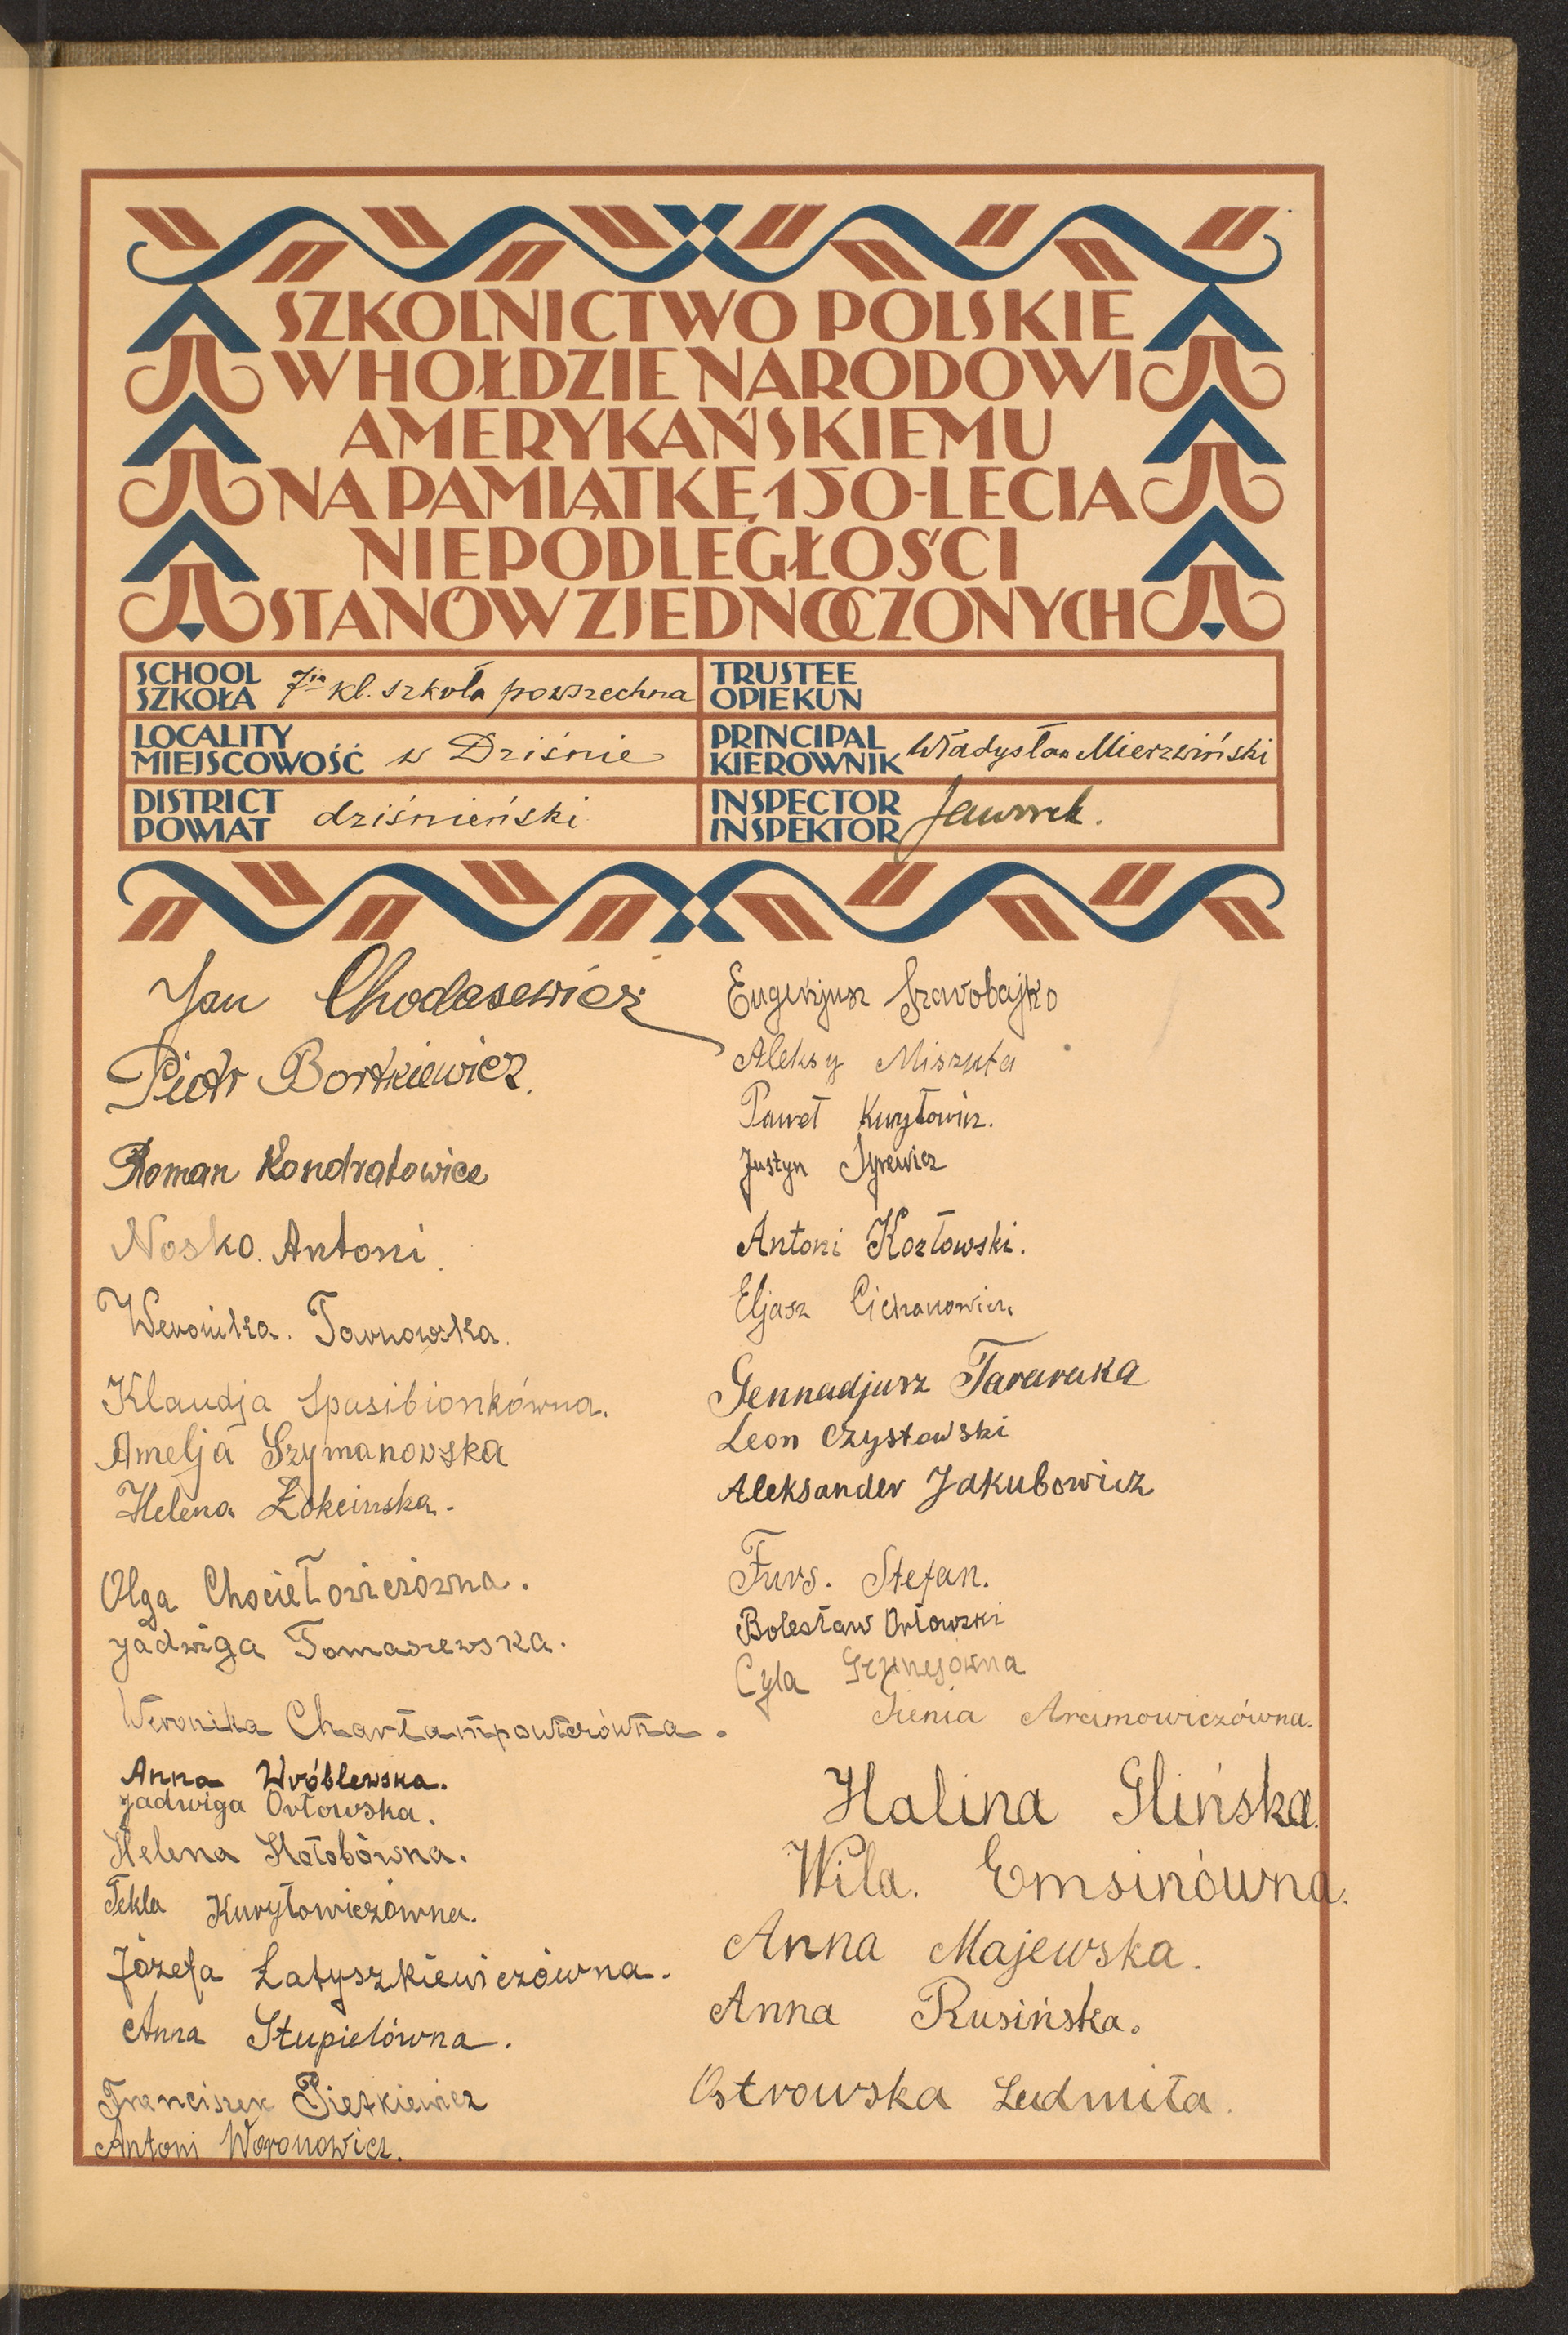 SZKOLNICTWO POLSKIE
W HOŁDZIE NARODOWI
AMERYKAŃSKIEMU
NA PAMIĄTKĘ 150-LECIA
NIEPODLEGŁOŚCI
STANÓW ZJEDNOCZONYCH
SCHOOL
SZKOŁA 7m kl. szkoła powszechna
TRUSTEE
OPIEKUN
LOCALITY
MIEJSCOWOŚĆ w Dziśnie
PRINCIPAL
KIEROWNIK Władysław Mierzwiński
DISTRICT
POWIAT dziśnieński
INSPECTOR
INSPEKTOR
Jan Chodasewicz
Piotr Bortkiewicz.
Roman Kondratowicz
Nosko. Antoni.
Weronika. Tarnowska.
Klaudja Spasibionkówna.
Amelja Szymanowska
Helena
Olga Chociełowiczówna.
Jadwiga Tomaszewska.
Weronika
Anna Wróblewska.
Jadwiga Orłowska.
Helena Hołobówna.
Tekla Kuryłowiczówna.
Józefa Łatyszkiewiczówna.
Anna Stupielówna.
Franciszek Pietkiewicz
Antoni Woronowicz.
Eugenjusz
Aleksy Miszuta
Paweł Kuryłowicz.
Justyn
Antoni Kozłowski.
Eljasz Cichanowicz.
Gennadjusz Tararaka
Leon Czystowski
Aleksander Jakubowicz
Furs. Stefan.
Bolesław Orłowski
Cyla
Arcimowiczówna.
Halina Glińska.
Wila. Emsinówna.
Anna Majewska.
Anna Rusińska.
Ostrowska Ludmiła.